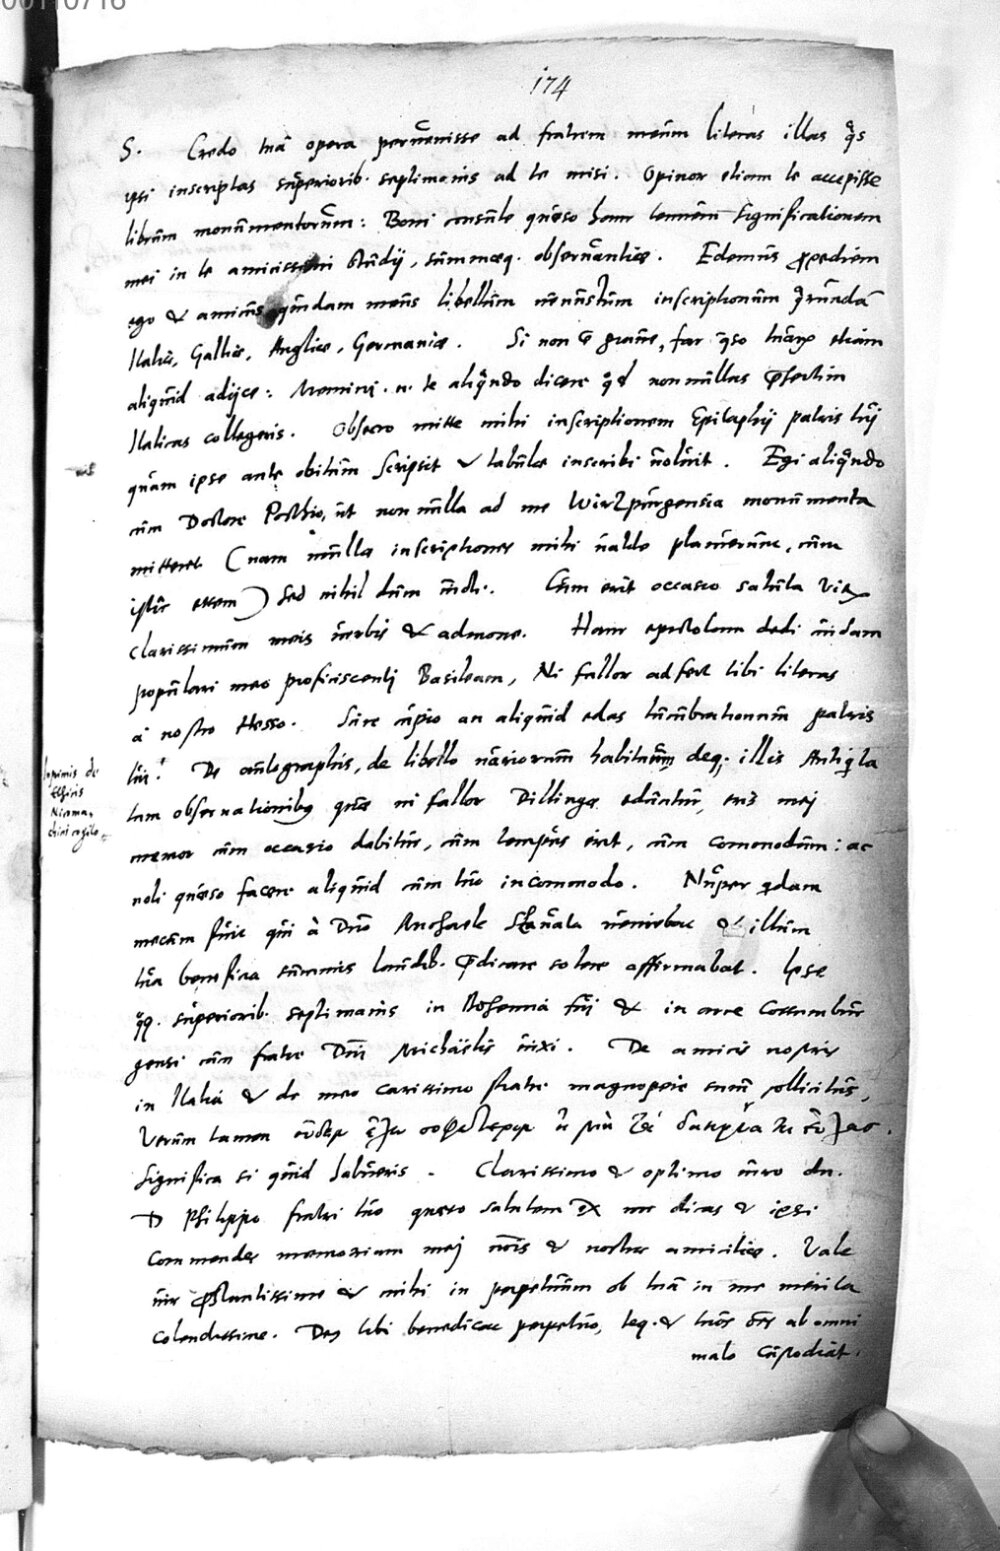 00110716
174
S. Credo tuā opera pervenisse ad fratrem meum literas illas q̄s
ipsi inscriptas superiorib. septimanis ad te misi. Opinor etiam te accepisse
librum monumentorum: Boni consule quæso hanc tenuem significationem
mei in te amicissimi studij, summæq. observantiæ. Edemus propediem
ego & amicus quidam meus libellum venustum inscriptionum
Italiæ, Galliæ, Angliæ, Germaniæ. Si non ē grave, fac q̄so etiam
aliquid adijce: Memini .n. te aliq̄ndo dicere q̄d nonnullas p̄sertim
Italicas collegeris. Obsecro mitte mihi inscriptionem Epitaphij patris tui
quam ipse ante obitum scripsit & tabulæ inscribi voluit. Egi aliq̄ndo
cum Doctore Posthio, ut nonnulla ad me Wirtzpurgensia monumenta
mitteret (nam nullæ inscriptiones mihi valde placuerunt, cum
istic essem) sed nihil dum
Cum erit occasio saluta
clarissimum meis verbis & admone. Hanc epistolam dedi cuidam
populari meo proficiscenti Basileam, Ni fallor adfert tibi literas
a nostro Hesso. Scire cupio an aliquid edas lucubrationum patris
tui? De autographis, de libello variorum habituum deq. illis Antiq̄ta
tum observationibus quæ ni fallor Dillingæ edantur, eris mej
memor cum occasio dabitur, cum tempus erit, cum comodum: ac
noli quæso facere aliquid cum tuo incommodo. Nuper q̄dam
mecum fuit qui à Dn̄o Michaele veniebat & illum
tua beneficia summis laudib. p̄dicare solere affirmabat. Ipse
q̄q. superiorib. septimanis in Bohemia fui & in arce
gensi cum fratre Dn̄i Michaelis vixi. De amicis nostris
in Italia & de meo carissimo fratre magnopere sum sollicitus,
Verum tamen
Significa si quid habueris. Clarissimo & optimo viro dn.
D Philippo fratri tuo quæso salutem ex me dicas & ipsi
commendes memoriam mej nominis & nostræ amicitiæ. Vale
vir p̄stantissime & mihi in perpetuum ob tua in me merita
colendissime. Deus tibi benedicat perpetuo, teq. & tuos oēs ab omni
malo custodiat.
Inprimis de